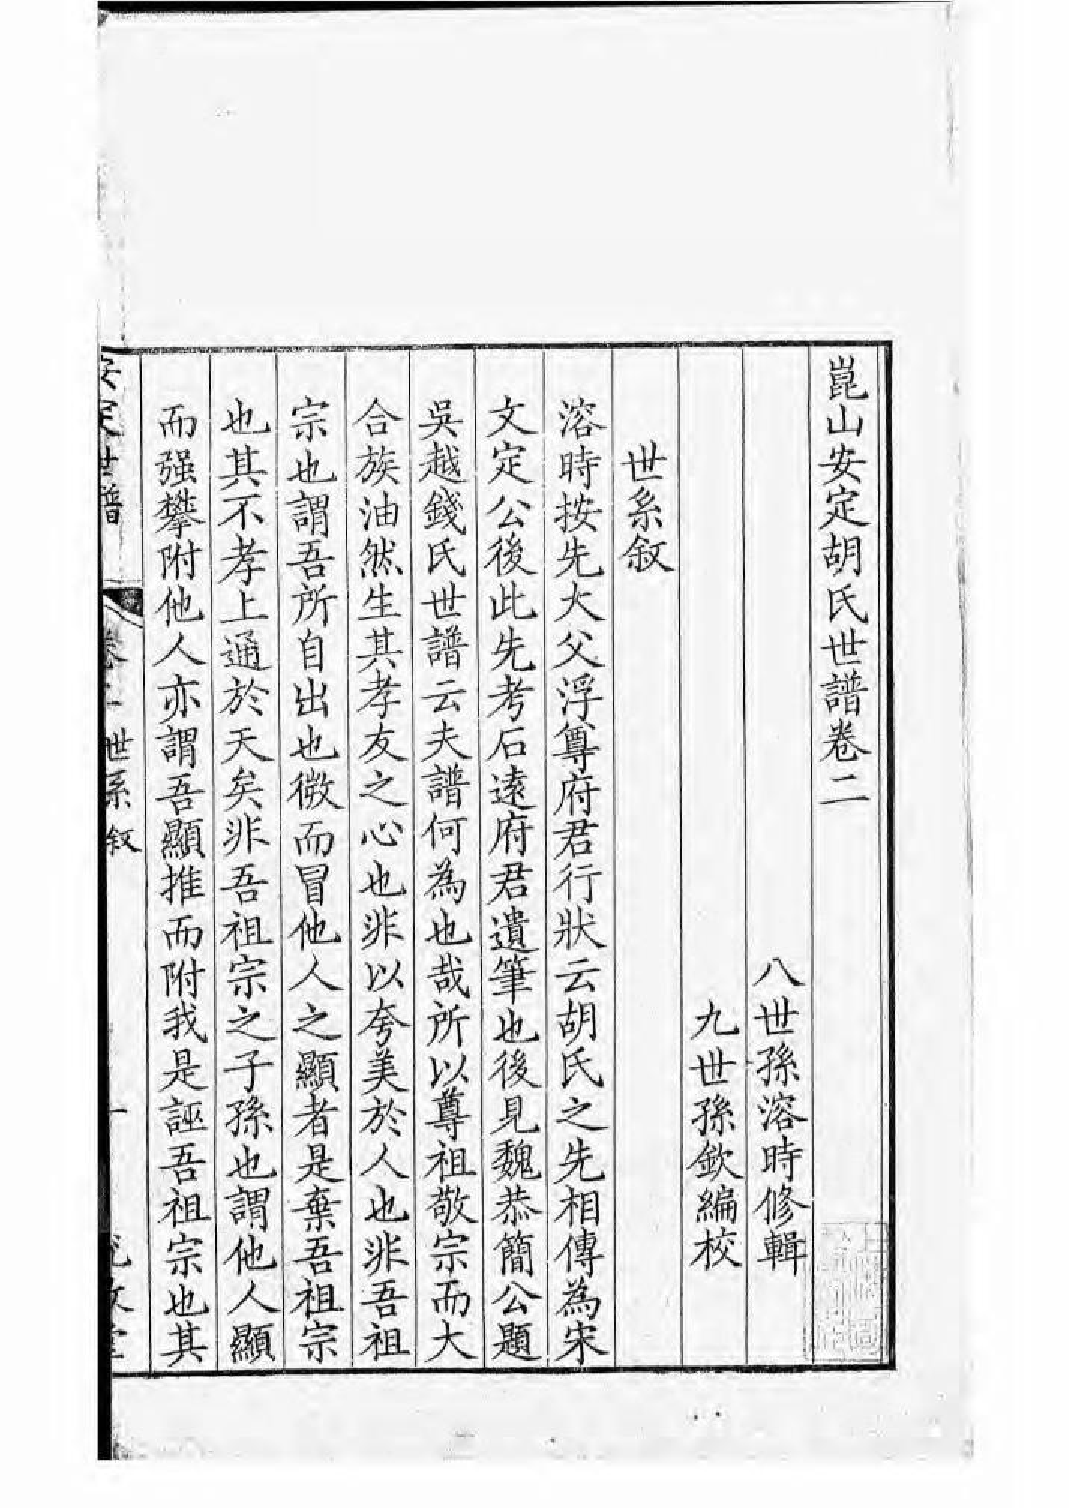 崑山安定胡氏世譜卷二
八世孫溶時修輯
九世孫欽編校
世系敘
溶時按先大父浮尊府君行狀云胡氏之先相傳為宋
文定公後此先考石遠府君遺筆也後見魏恭簡公題
吳越錢氏世譜云夫譜何為也哉所以尊祖敬宗而大
合族油然生其孝友之心也非以夸美於人也非吾祖
宗也謂吾所自出也微而冒他人之顯者是棄吾祖宗
也其不孝上通於天矣非吾祖宗之子孫也謂他人顯
而强攀附他人亦謂吾顯推而附我是誣吾祖宗也其
安定世譜
卷二 世系敘